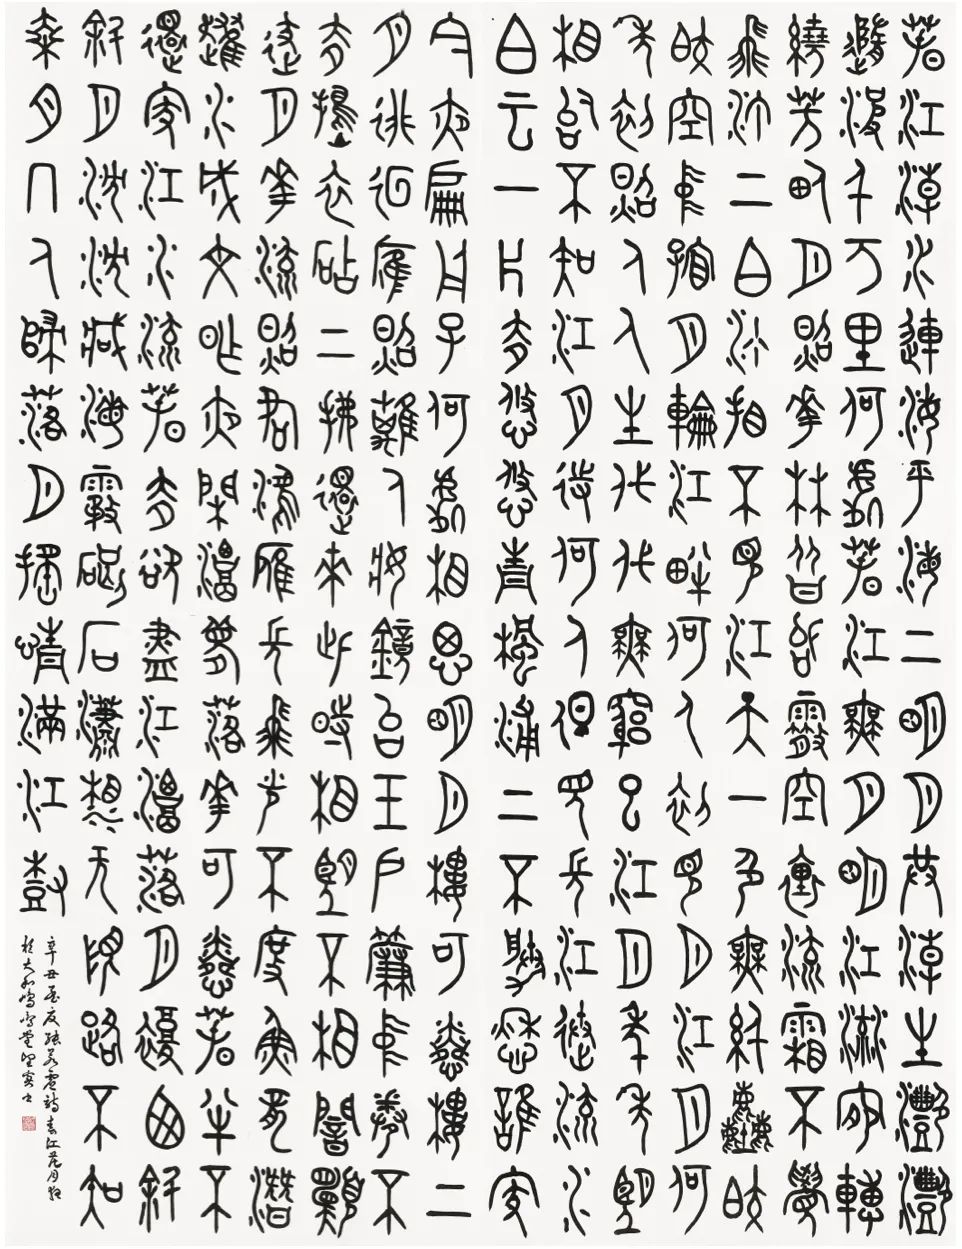 春江潮水連海平海上明月共潮生灩灩
隨波千万里何處春江無月明江流宛轉
繞芳甸月照花林皆似霰空裏流霜不覺
飛汀上白沙看不見江天一色無纖塵皎
皎空中孤月輪江畔何人初見月江月何
年初照人人生代代無窮已江月年年望
相似不知江月待何人但見長江送流水
白云一片去悠悠青楓浦上不勝愁誰家
今夜扁舟子何處相思明月樓可憐樓上
月徘徊應照離人妝鏡臺玉戶簾中卷不
去擣衣砧上拂還來此時相望不相聞願
逐月華流照君鴻雁長飛光不度魚龍潛
躍水成文昨夜閑潭夢落花可憐春半不
還家江水流春去欲盡江潭落月復西斜
斜月沈沈藏海霧碣石瀟湘無限路不知
乘月幾人歸落月搖情滿江樹
辛丑夏 張若虛詩春江花月夜
於太和